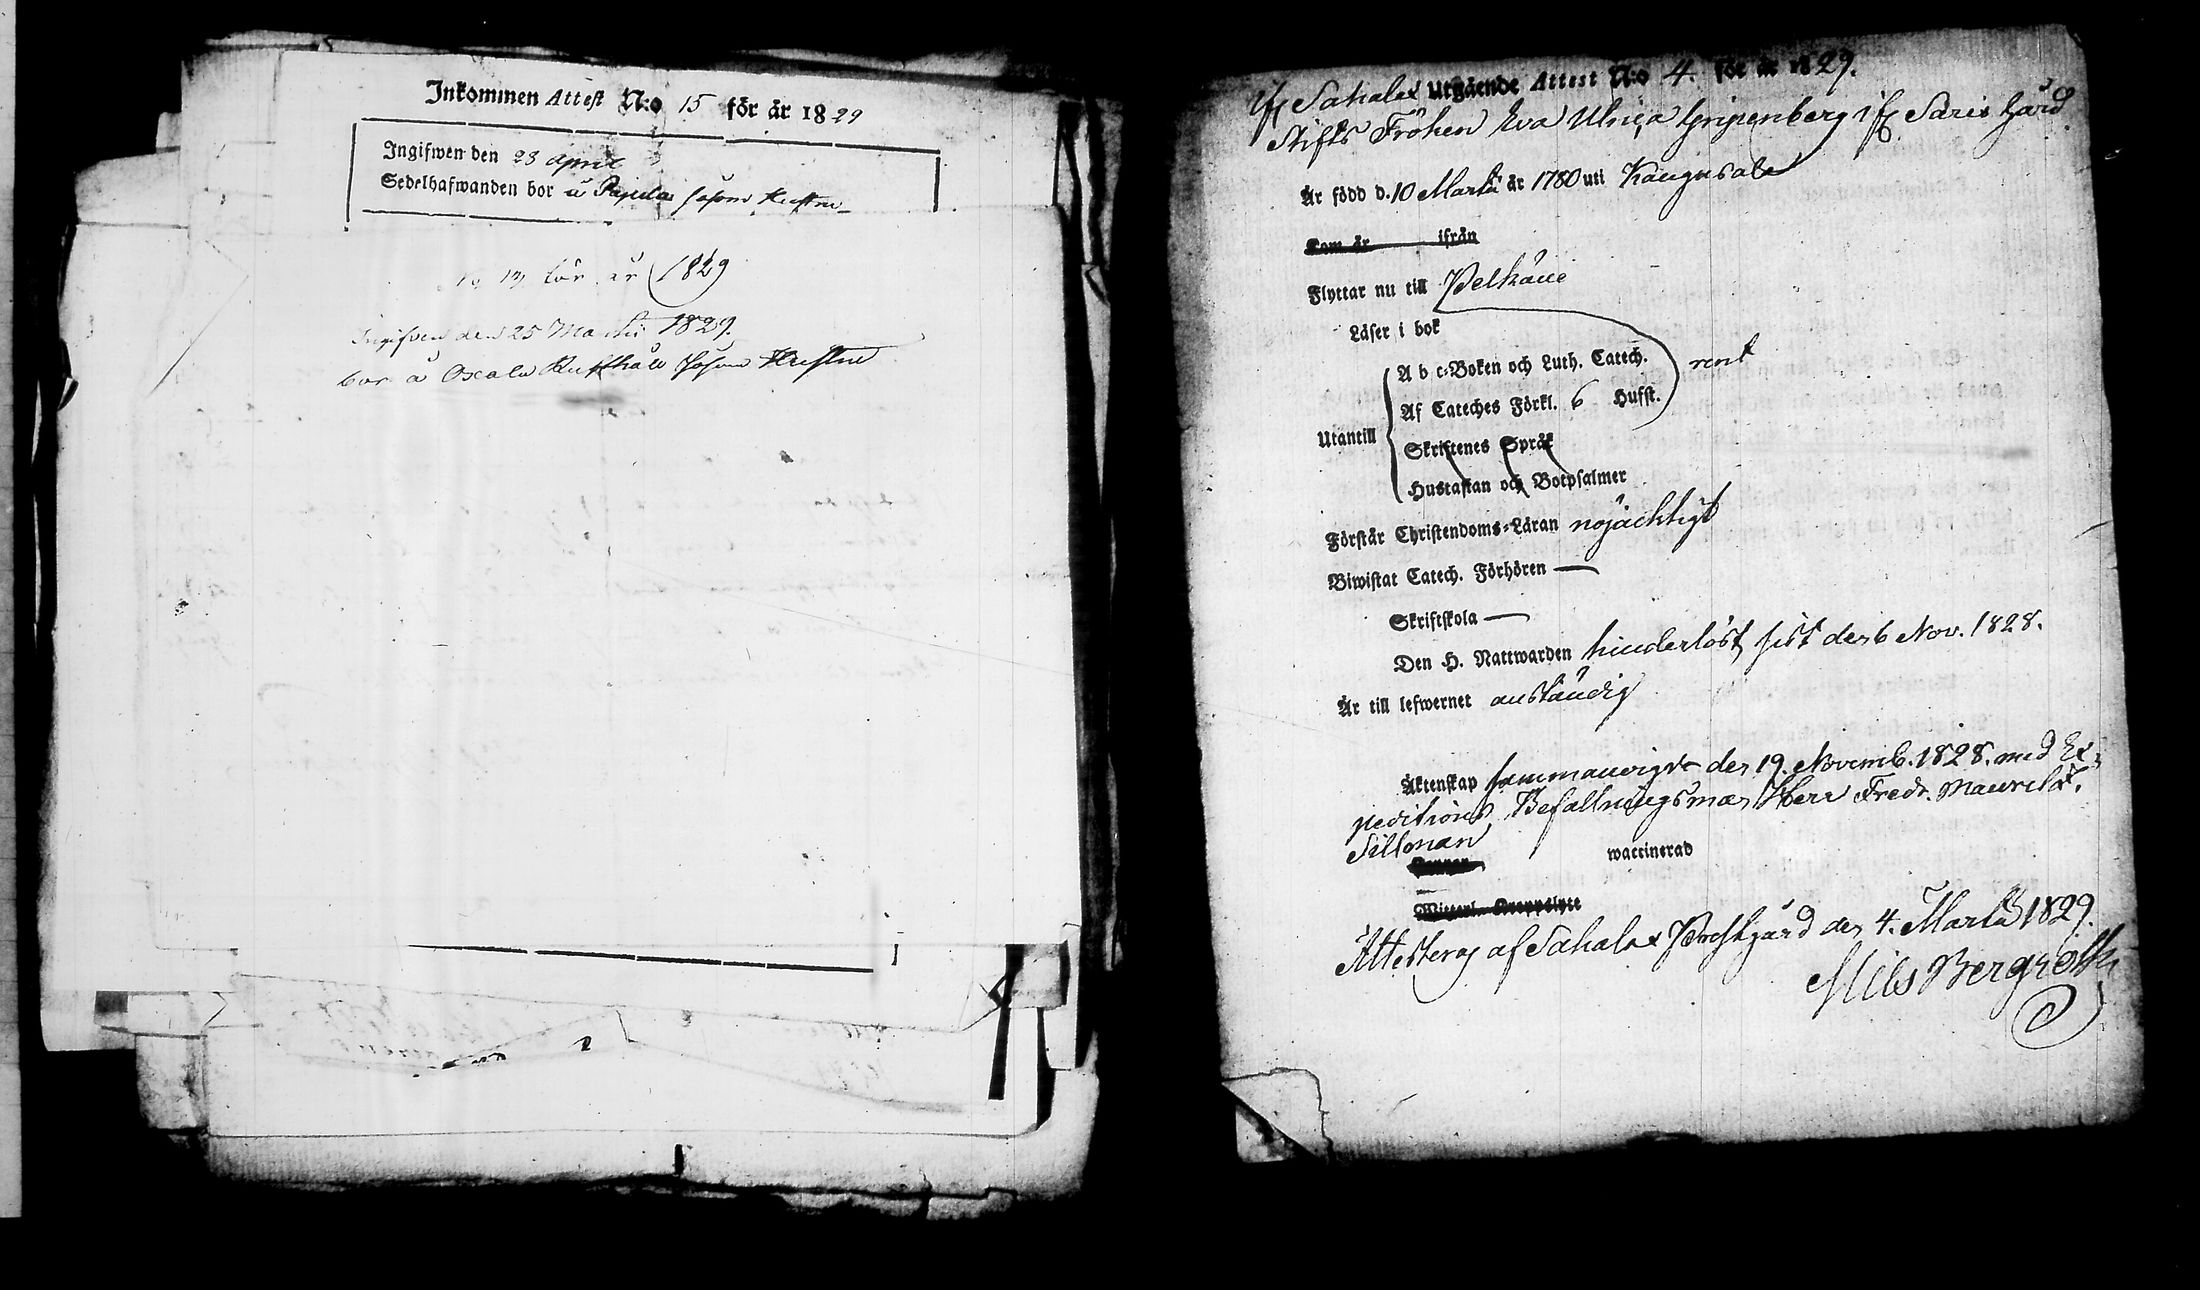 Inkommen Attest N:o 15 för år 1829
Ingifwen den 23 April
Sedelhafwanden bor å
för år 1829
Ingifven den 25 Martii 1829.
bor å
ifr. Sahalax Utgående Attest N:o 4. för år 1829.
Stifts Fröken Eva Ulrica Gripenberg ifr. Saris Gård
Är född d. 10 Martii år 1780 uti Kangasala
Kom år ifrån
Flyttar nu till Pelkäne
Läser i bok
A b c-Boken och Luth. Catech. rent
Af Cateches Förkl. 6 Hufst.
Utantill
Skriftenes Språk
Hustaflan och Botpsalmer
Förstår Christendoms-Läran nöjachtigt
Biwistat Catech. Förhören —
Skriftskola —
Den H. Nattwarden hinderlöst, sist den 6 Nov. 1828.
Är till lefwernet anständig
Äktenskap sammanvigd den 19. Novemb. 1828. med Ex-
peditions Befallningsman Herr Fredr. Maurits
Sillman
waccinerad
Attesteras af Sahalax Prestgård den 4. Martii 1829.
Nils Bergroth